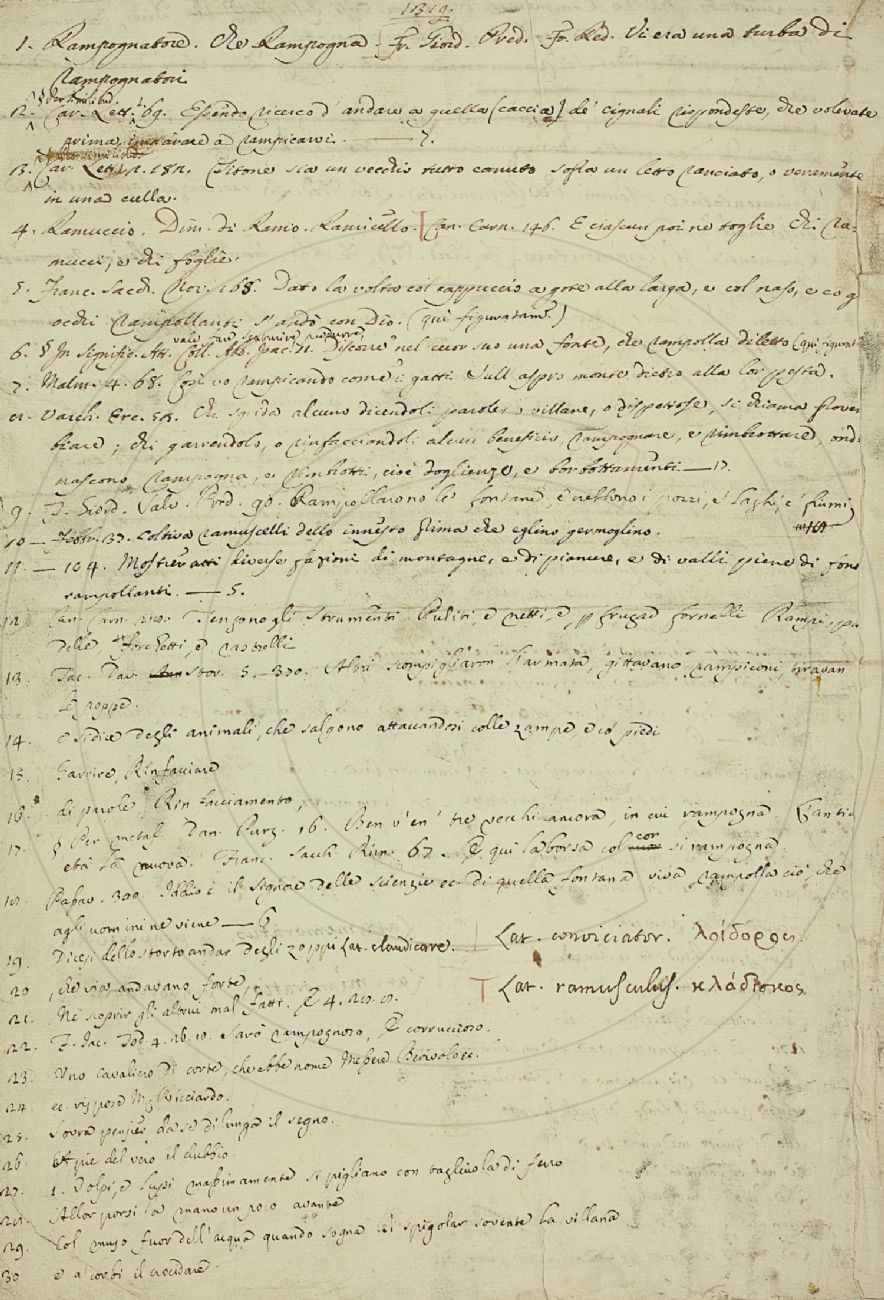 1319.
1. Rampognatore. Che Rampogna. Fr. Giord. Pred. Fr. Red. Vi era una turba di
rampognatori
§ Per similitud.
12. Car. Lett. 1. 69. Essendo ricerco d'andare a quella (caccia) de' cignali rispondeste, che volevate
prima imparare a rampicarvi. — 7.
§ Per similitud.
13. Car. Lett. 2. 182. Titone sia un vecchio tutto canuto sopra un letto ranciato, o veramente
in una culla.
4. Ramuccio. Dim. di Ramo. Ramicello. Can. Carn. 146. E ciascun poi ne toglie Chi ra-
mucci, e chi foglie.
5. Franc. Sacch. Nov. 168. Dato la volta col cappuccio a gote alla larga, e col naso, e co gl
occhi rampollanti s'andò con Dio. (qui figuratam.)
vale far scaturire, produrre
6. § In signific. Att. Coll. Ab. Isac. 21. Discorre nel cuor suo una fonte, che rampolla diletto (qui figurat.
7. Malm. 4. 68. Così vo rampicando come i gatti Sull aspro monte dietro alla lor pesta.
8. Varch. Erc. 58. Chi sgrida alcuno dicendoli parole o villane, o dispettose, si chiama prover
biare; chi garrendolo, o rinfacciandoli alcun benefizio, rampognare, e rimbrottare, onde
nascono rampogna, e rimbrotti, cioè doglienze, e borbottamenti — 17.
9. F. Giord. Salv. Pred. 90. Rampollarono le fontane, e nebbono i pozzi, e' laghi, e' fiumi
10 — Febbr. 37. Coltiva ramuscelli dello innesto prima che eglino germoglino.
11. — 104. Mostrevatti diverse fazioni di montagne, e di pianure, e di valli piene di fonti
rampollanti. — 5.
12 Can. Carn. 218. Tengono gli strumenti Puliti, e netti, e, p frugar fornelli Rampi, pa
delle Forchetti, e rastrelli
13. Tac. Dav. Stor. 5. 370. Altri scompigliaron l'armata, gittavano rampiconi, tiravan
le poppe.
14. e si dice degli animali, che salgono attaccandosi colle zampe, e co' piedi
15. Garrire, Rinfacciare
16. di parole, Rinfacciamento,
17. § Per metaf. Dan. Purg. 16. Ben v'èn' tre vecchi ancora, in cui rampogna L'antica
età la nuova. Franc. Sacch. Rim. 67. E qui la borsa col cor si rampogna
18. Passav. 300. Iddio è il signore delle scienzie ec. di quella fontana viva rampolla ciò, che
agli uomini ne viene — 6
19. Dicesi dello storto andar degli zoppi Lat. claudicare. Lat. conviciator. λοίδορος.
20 , che via andavano forte, Lat. ramusculus. κλάδισκος
21. Ne scoprir gli altrui mal fatt. E 4. 28. 8.
22. F. Jac. Tod. 4. 26. 10. Sarò rampognoso, E corruccioso.
23. Uno cavaliero di corte, che ebbe nome Messere Berivolo ec.
24. ec. rispose M. Ricciardo.
25. Sovra pensier da se dilunga il segno.
26. Appie del vero il dubbio.
27. 1. Volpi, e Lupi massimamente si pigliano con tagliuola di ferro
28. Allor porsi la mano un poco avante
29. Col muso fuor dell'acqua quando sogna Di spigolar sovente la villana
30 e a corbi il crocidare